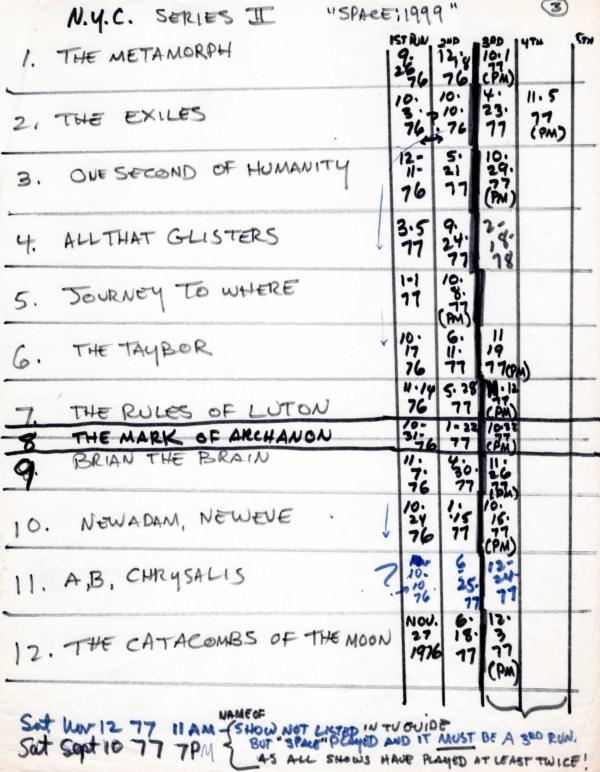 N.Y.C. SERIES II "SPACE:1999" 3
1ST RUN 2ND 3RD 4TH 5TH
1. THE METAMORPH 9. 26 76 12. 18 76 10.1 77 (PM)
2. THE EXILES 10. 3. 76 10. 10. 76 4. 23. 77 11.5 77 (PM)
3. ONE SECOND OF HUMANITY 12- 11- 76 5. 21 77 10. 29. 77 (PM)
4. ALL THAT GLISTERS 3.5 77 9. 24. 77 2- 18- 78
5. JOURNEY TO WHERE 1-1 77 10. 8. 77 (PM)
6. THE TAYBOR 10. 17 76 6. 11. 77 11 19 77(PM)
7. THE RULES OF LUTON 11.14 76 5.28 77 12 77 (PM)
8 THE MARK OF ARCHANON 10- 31- 76 1-22 77 77 (PM)
9. BRIAN THE BRAIN 11. 7. 76 4. 30. 77 11. 26 77 (PM)
10. NEWADAM, NEWEVE 10. 24 76 1. 15 77 10. 15. 77 (PM)
11. A,B, CHRYSALIS ? 10- 10 76 6 25. 77 12- 24- 77
12. THE CATACOMBS OF THE MOON NOV. 27 1976 6. 18. 77 12. 3 77 (PM)
Sat Nov 12 77 11 AM - NAME OF SHOW NOT LISTED IN TV GUIDE
Sat Sept 10 77 7PM BUT "SPACE" PLAYED AND IT MUST BE A 3RD RUN.
AS ALL SHOWS HAVE PLAYED AT LEAST TWICE!